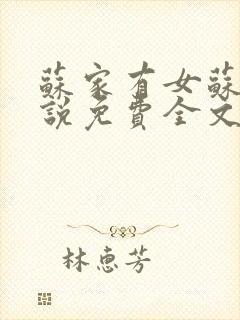 蘇家有女蘇
說免費全文
林惠芳